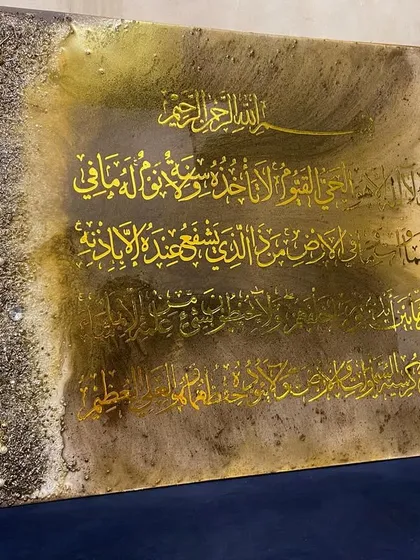 بسم الله الرحمن الرحيم
إلا هو الحي القيوم لا تأخذه سنة ولا نوم له ما في
وما في الأرض من ذا الذي يشفع عنده إلا بإذنه
خلفهم ولا يحيطون بشيء من علمه إلا بما شاء
كرسيه السموات والأرض ولا يؤده حفظهما وهو العلي العظيم